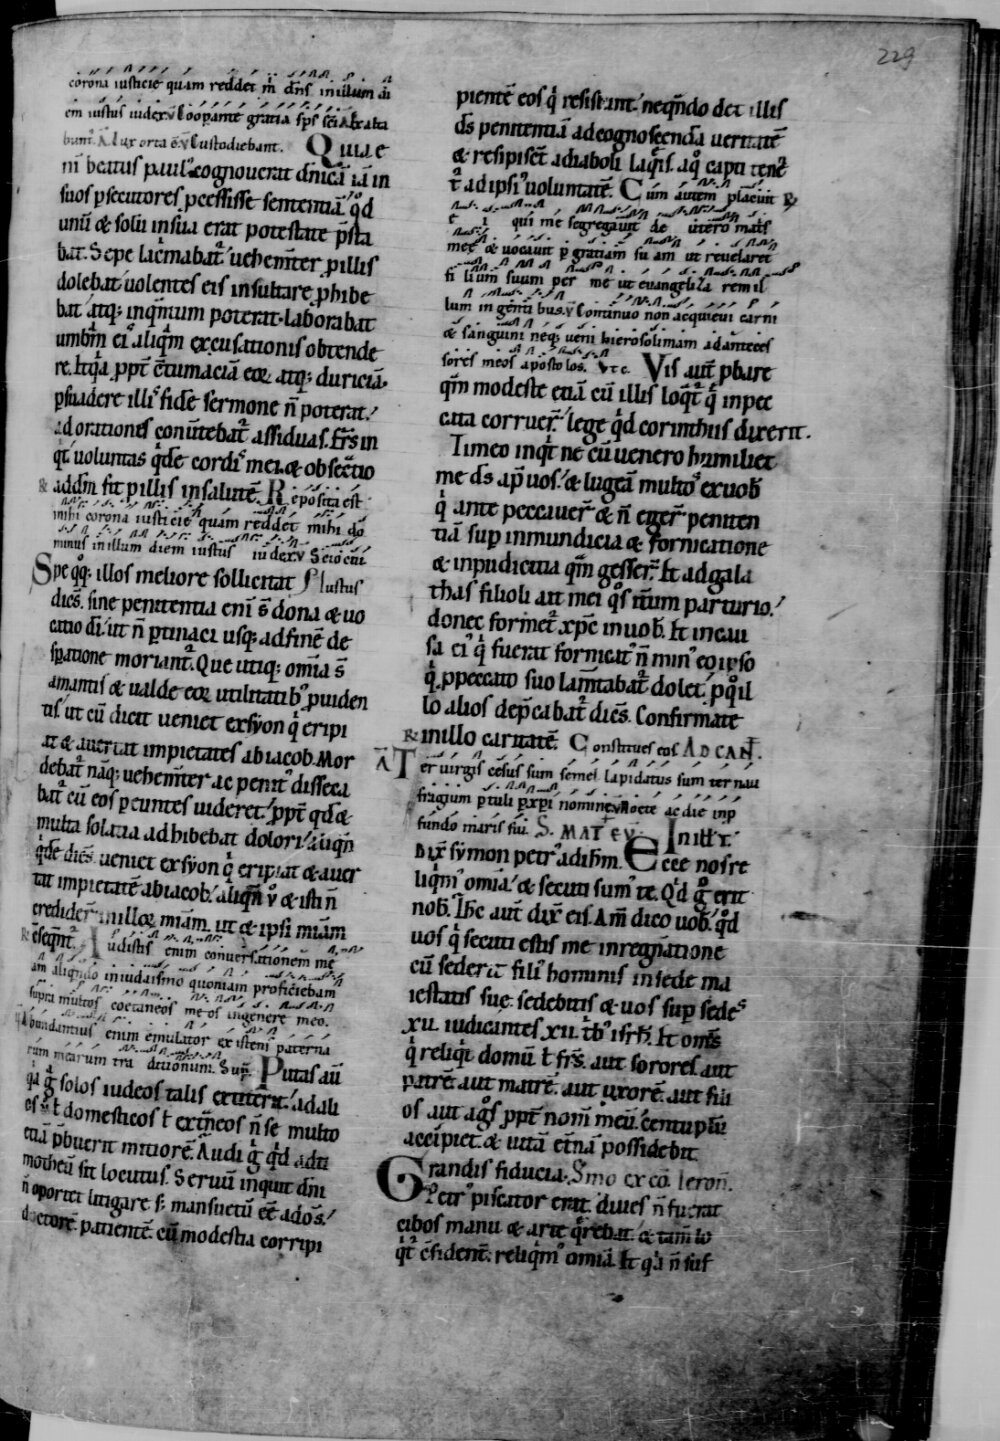 229
corona iusticie quam reddet m̄ dn̄s in illum di
em iustus iudex. ℣ Coopante gratia sp̄s sc̄i
bunt. A. Lux orta ē. ℣ Custodiebant. Quia e
ni beatus paul᷒ cognouerat dn̄icā iā in
suos ꝑsecutores ꝓcessisse sententiā. qd̄
unū & solū in sua erat potestate p̄sta
bat. Sepe lac̄mabat᷑ uehemt̄er ꝓ illis
dolebat uolentes eis insultare ꝓhibe
bat. atq; inqn̄tum poterat laborabat
umbrā ei᷒ aliqm̄ excusationis obtende
re. Et qa ꝓpt̄ c̄tumaciā eoꝝ atq; duriciā.
ꝑsuadere illi᷒ fide sermone n̄ poterat.
ad orationes conūtebat᷑ assiduas. Fr̄s in
qt̄ uoluntas qde cordi᷒ mei. & obsecr̄tio
℟ ad dm̄ fit ꝓ illis in salutē. Reposita est
mihi corona iusticie quam reddet mihi do
minus in illum diem iustus iudex. ℣ Scio cui
Spe qq; illos meliore sollicitat Iustus
dicēs. sine penitentia eni s̄ dona & uo
catio di. ut n̄ ꝑtinaci usq; ad finē de
sꝑatione moriant᷑. Que utiq; omīa s̄
amantis & ualde eoꝝ utilitatib᷒ ꝓuiden
tis. ut cū dicit ueniet ex syon q̇ eripi
at & auertat impietates ab iacob. Mor
debat᷑ nāq; uehemt̄er ac penit᷒ disseca
bat᷑ cū eos ꝑeuntes uideret. ꝓpt̄ qde
multa solatia adhibebat dolori. aliqn̄
qde dicēs. ueniet ex syon q̇ eripiat & auer
tat impietatē ab iacob. aliqn̄ v̊ & isti n̄
crediderᷓ in illoꝝ miam. ut & ipsi miam
℟ c̄seqn̄t᷑. Audistis enim conuersationem me
am aliqn̄do in iudaismo quoniam proficiebam
supra multos coetaneos meos in genere meo.
℣ Abundantius enim emulator existens paterna
rum mearum traditionum. Sup̄. Putas aū
qa g̊ solos iudeos talis extiterit. ad ali
os u᷒ t̄ domesticos t̄ extn̄eos n̄ se multo
etiā p̄buerit mitiorē. Audi g̊ qd̄ ad ti
motheū sit locutus. Seruū inquit dn̄i
n̄ oportet litigare s; mansuetū eē ad om̄s.
doctorē. patientē. cū modestia corripi
pientē eos q̇ resistant. neqn̄do det illis
ds̄ penitentiā ad cognoscenda ueritatē
& resipisct̄ a diaboli laq̇is. a q̊ capti tene
t᷑ ad ipsi᷒ uoluntatē. Cum autem placuit ℟
e i qui me segregauit de utero mat̄s
mee & uocauit ꝑ gratiam suam ut reuelaret
filium suum per me ut euangelizarem il
lum in gentibus. ℣ Continuo non acquieui carni
& sanguini neq; ueni hierosolimam ad anteces
sores meos apostolos. Vt c. Vis aut̄ ꝓbare
qm̄ modeste etiā cū illis loqt᷑ q̇ in pec
cata corruer᷑. lege qd̄ corinthiis dixerit.
Timeo inqt̄ ne cū uenero humiliet
me ds̄ apᷣ uos. & lugeā multo᷒ ex uob̄
q̇ ante peccauer᷑ & n̄ eger᷑ peniten
tiā suꝑ inmundicia & fornicatione
& inpudicitia qm̄ gesser᷑. Et ad gala
thas filioli ait mei qs iterū parturio.
donec formet᷑ xp̄c in uob̄. Et in cau
sa ei᷒ q̇ fuerat fornicat᷒ n̄ min᷒ eo ipso
q̇ ꝓ peccato suo lam̄tabat᷑ dolet. ꝓ q̊ il
lo alios dep̄cabat᷑ dicēs. Confirmate
℟ in illo caritatē. Constitues eos AD CAN.
A Ter uirgis cesus sum semel lapidatus sum ter nau
fragium ꝑtuli ꝓ xp̄i nomine. ℣ Nocte ac die in ꝓ
fundo maris fui. S. MATEV. In ill' t.
Dix̄ symon petr᷒ ad ih̄m. Ecce nos re
liqm᷒ omīa. & secuti sum᷒ te. Qd̄ g̊ erit
nob̄. Ih̄c aut̄ dix̄ eis. Am̄ dico uob̄. qd̄
uos q̇ secuti estis me in regn̄atione
cū sederit fili᷒ hominis in sede ma
iestatis sue. sedebitis & uos suꝑ sedes
xii. iudicantes xii. tb᷒ isrl̄. Et om̄s
q̇ reliqt̄ domū t̄ frs̄. aut sorores aut
patrē aut matrē. aut uxorē. aut fili
os aut ag̊s ꝓpt̄ nom̄ meū. centuplū
accipiet. & uitā et̄nā possidebit.
Grandis fiducia. Smo ex cō. Ieron̄.
Petr᷒ piscator erat. diues n̄ fuerat
cibos manu & arte qrebat. & tam̄ lo
qt᷑ c̄fident̄. reliqm᷒ omīa. Et qa n̄ suf